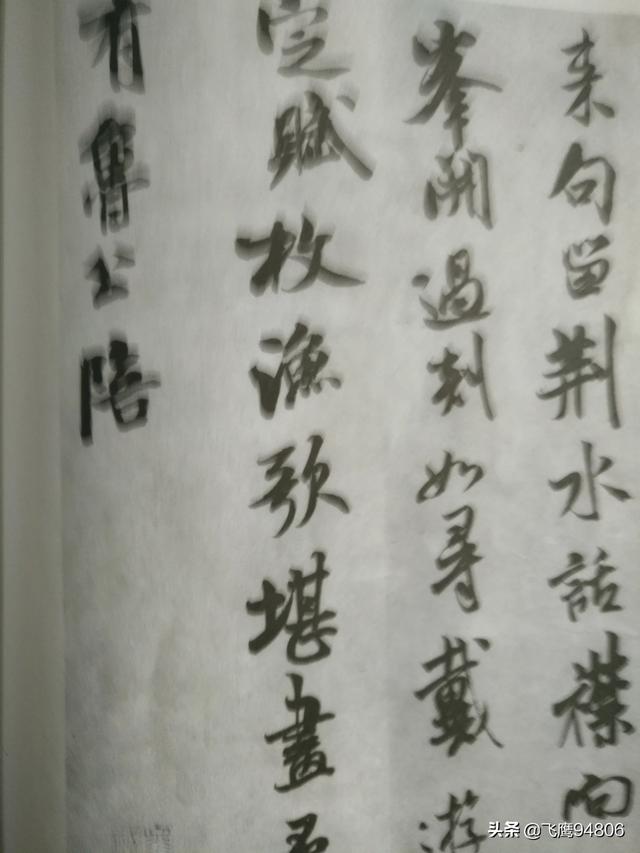 来句留荆水話襟向
峯開過剡如尋戴游
定賦枚漁歌堪畫又
有魯公陪
头条 @飞鹰94806